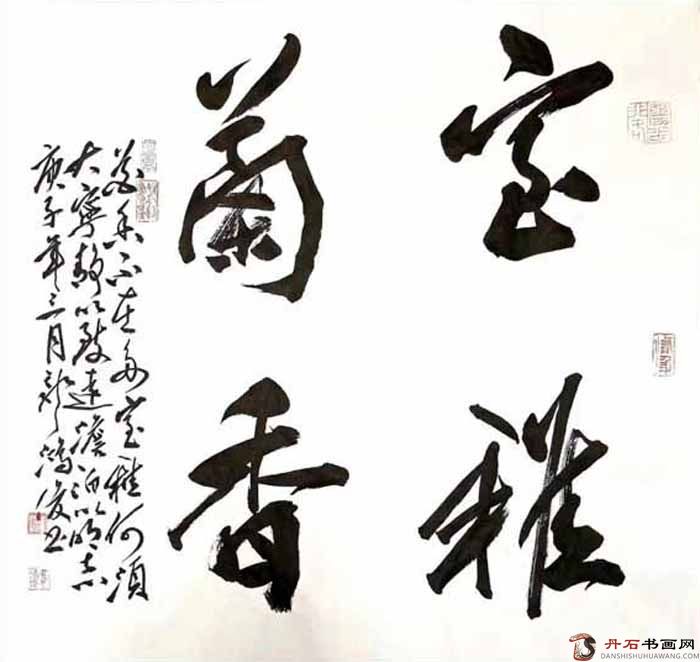 室雅
蘭香
花香不在多室雅何須
大寧静以致遠澹泊以明志
庚子年三月鴻俊书
丹石书画网
DANSHISHUHUAWANG.COM